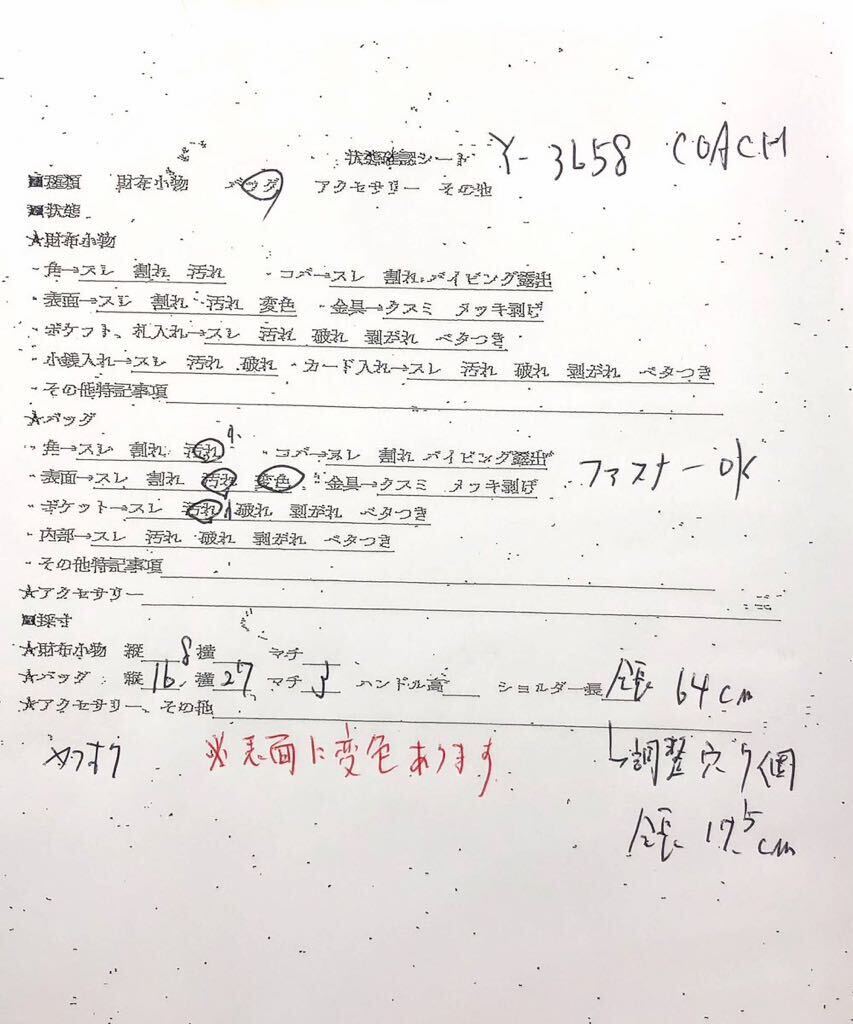 状態確認シート Y-3658 COACH
■種類 財布小物 バッグ アクセサリー その他
■状態
★財布小物
・角→スレ 割れ 汚れ ・コバ→スレ 割れ パイピング露出
・表面→スレ 割れ 汚れ 変色 ・金具→クスミ メッキ剥げ
・ポケット、札入れ→スレ 汚れ 破れ 剥がれ ベタつき
・小銭入れ→スレ 汚れ 破れ ・カード入れ→スレ 汚れ 破れ 剥がれ ベタつき
・その他特記事項
★バッグ
・角→スレ 割れ 汚れ ・コバ→スレ 割れ パイピング露出
・表面→スレ 割れ 汚れ 変色 ・金具→クスミ メッキ剥げ ファスナーOK
・ポケット→スレ 汚れ 破れ 剥がれ ベタつき
・内部→スレ 汚れ 破れ 剥がれ ベタつき
・その他特記事項
★アクセサリー
■採寸
★財布小物 縦 8 横 マチ
★バッグ 縦 16 横 27 マチ 3 ハンドル高 ショルダー長 全長 64cm
★アクセサリー、その他
※表面に変色あります
調整穴 7個
全長 17.5cm